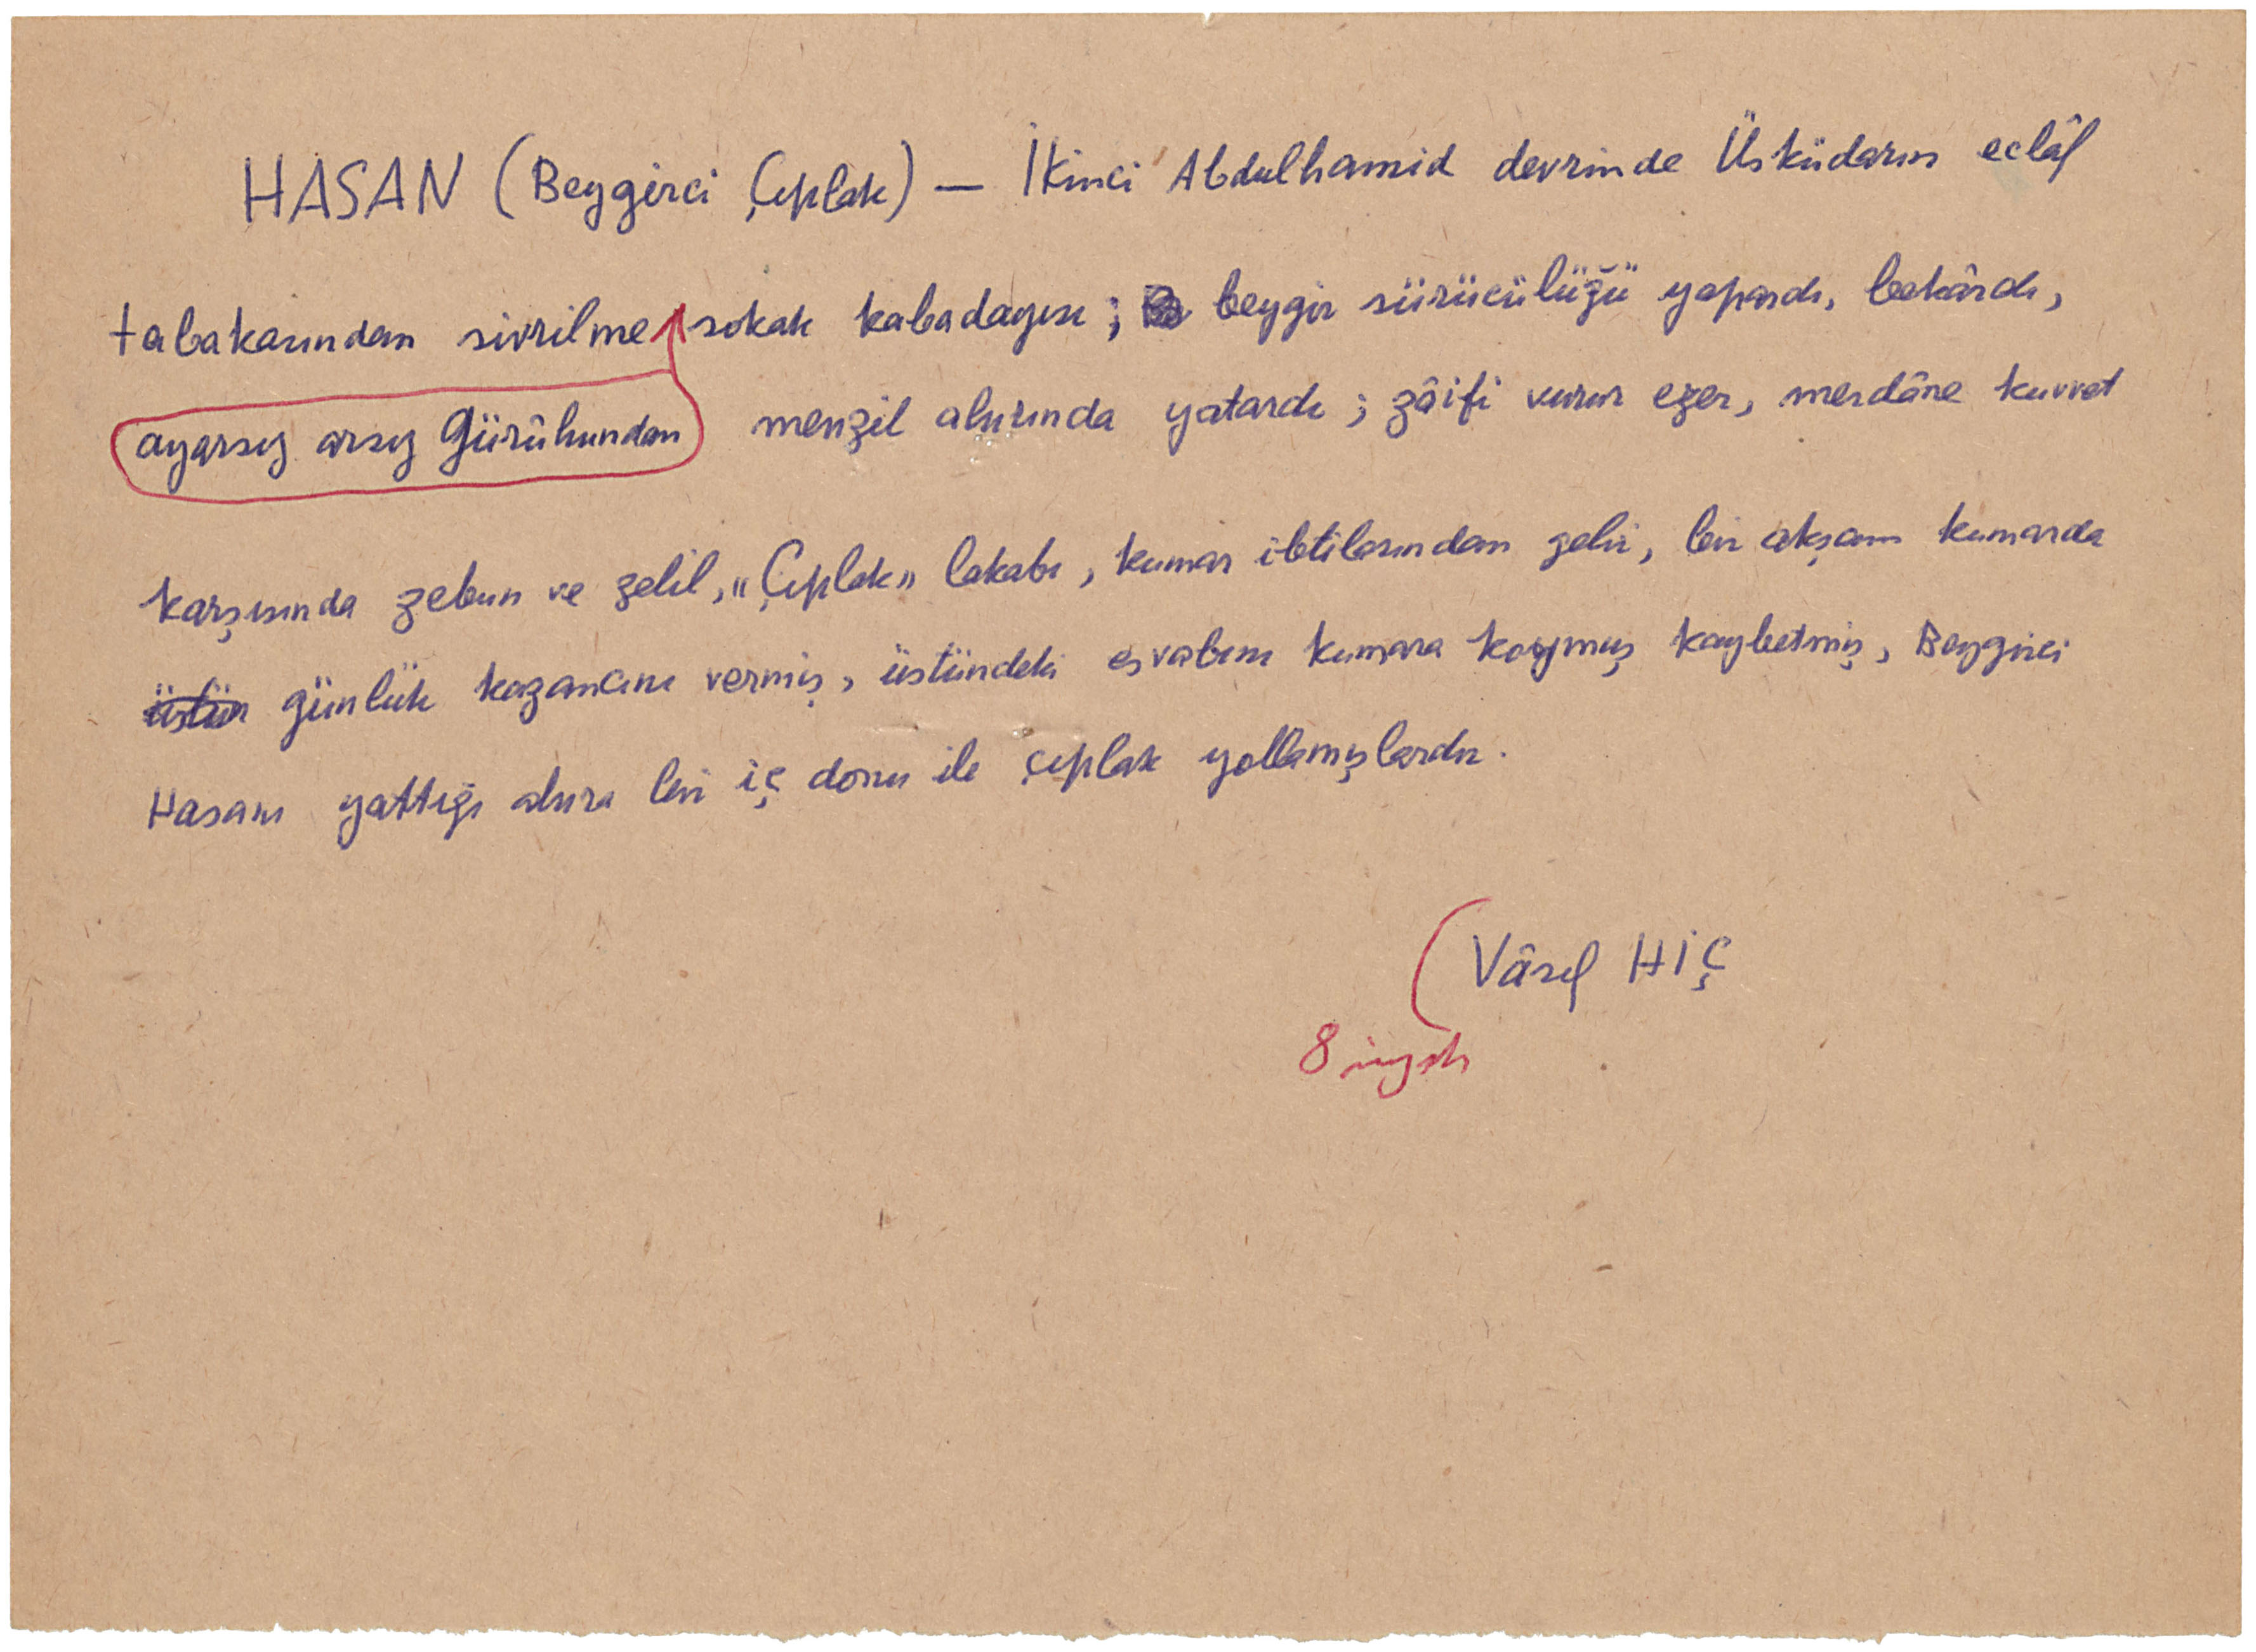 HASAN (Beygirci Çıplak) — İkinci Abdulhamid devrinde Üsküdarın eclâf
tabakasından sivrilme sokak kabadayısı; beygir sürücülüğü yapardı, bekârdı,
ayarsız arsız gürûhundan menzil ahırında yatardı; zâifi vurur ezer, merdâne kuvvet
karşısında zebun ve zelil, "Çıplak" lakabı, kumar ibtilasından gelir, bir akşam kumarda
üstün günlük kazancını vermiş, üstündeki esvabını kumara koymuş kaybetmiş, Beygirci
Hasanı yattığı ahıra bir iç donu ile çıplak yollamışlardır.
(Vâsıf HİÇ
8